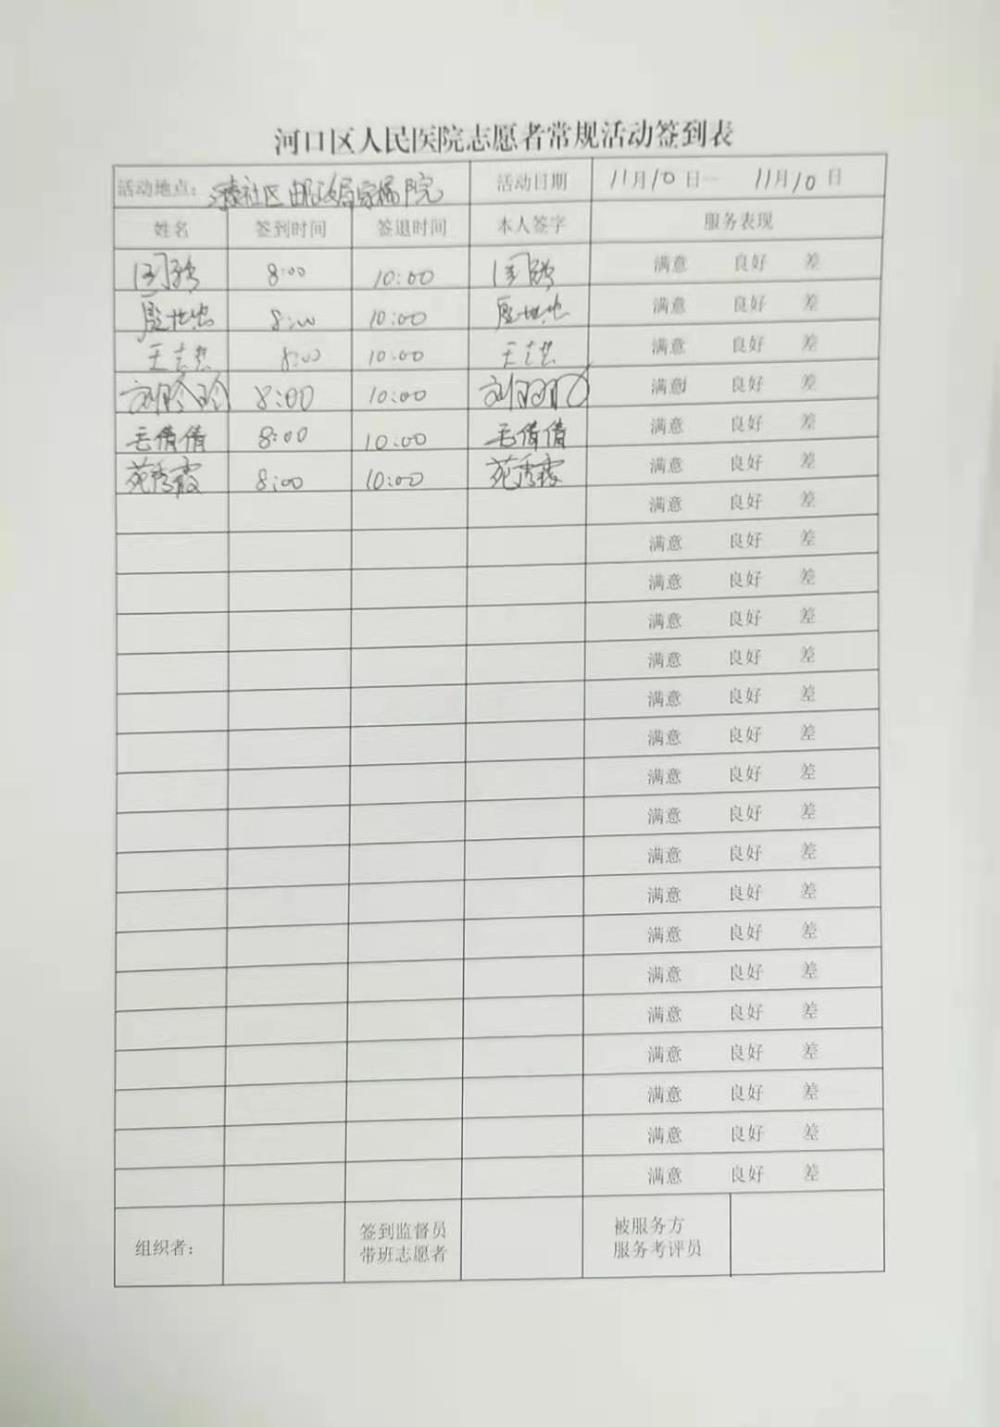 河口区人民医院志愿者常规活动签到表
活动地点: 社区邮政局家属院 活动日期 11月10日一 11月10日
姓名 签到时间 签退时间 本人签字 服务表现
8:00 10:00 满意 良好 差
8:00 10:00 满意 良好 差
王志 8:00 10:00 王志 满意 良好 差
刘玲玲 8:00 10:00 刘 满意 良好 差
毛倩倩 8:00 10:00 毛倩倩 满意 良好 差
苑秀霞 8:00 10:00 苑秀霞 满意 良好 差
满意 良好 差
满意 良好 差
满意 良好 差
满意 良好 差
满意 良好 差
满意 良好 差
满意 良好 差
满意 良好 差
满意 良好 差
满意 良好 差
满意 良好 差
满意 良好 差
满意 良好 差
满意 良好 差
满意 良好 差
满意 良好 差
满意 良好 差
满意 良好 差
组织者: 签到监督员 被服务方
带班志愿者 服务考评员